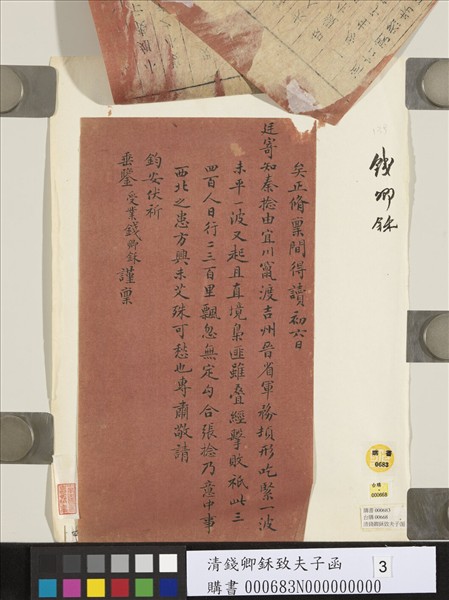 矣正脩稟間得讀初六日
廷寄知秦捻由宜川竄渡吉州晉省軍務頓形吃緊一波
未平一波又起且直境梟匪雖疊經擊敗祇此三
四百人日行二三百里飄忽無定勾合張捻乃意中事
西北之患方興未艾殊可愁也專肅敬請
鈞安伏祈
垂鑒 受業錢卿鉌謹稟
錢卿鉌
購書
0683
台購
000668
購書 000683
台購 00668
清錢卿鉌致夫子函
清錢卿鉌致夫子函
購書 000683N000000000
3